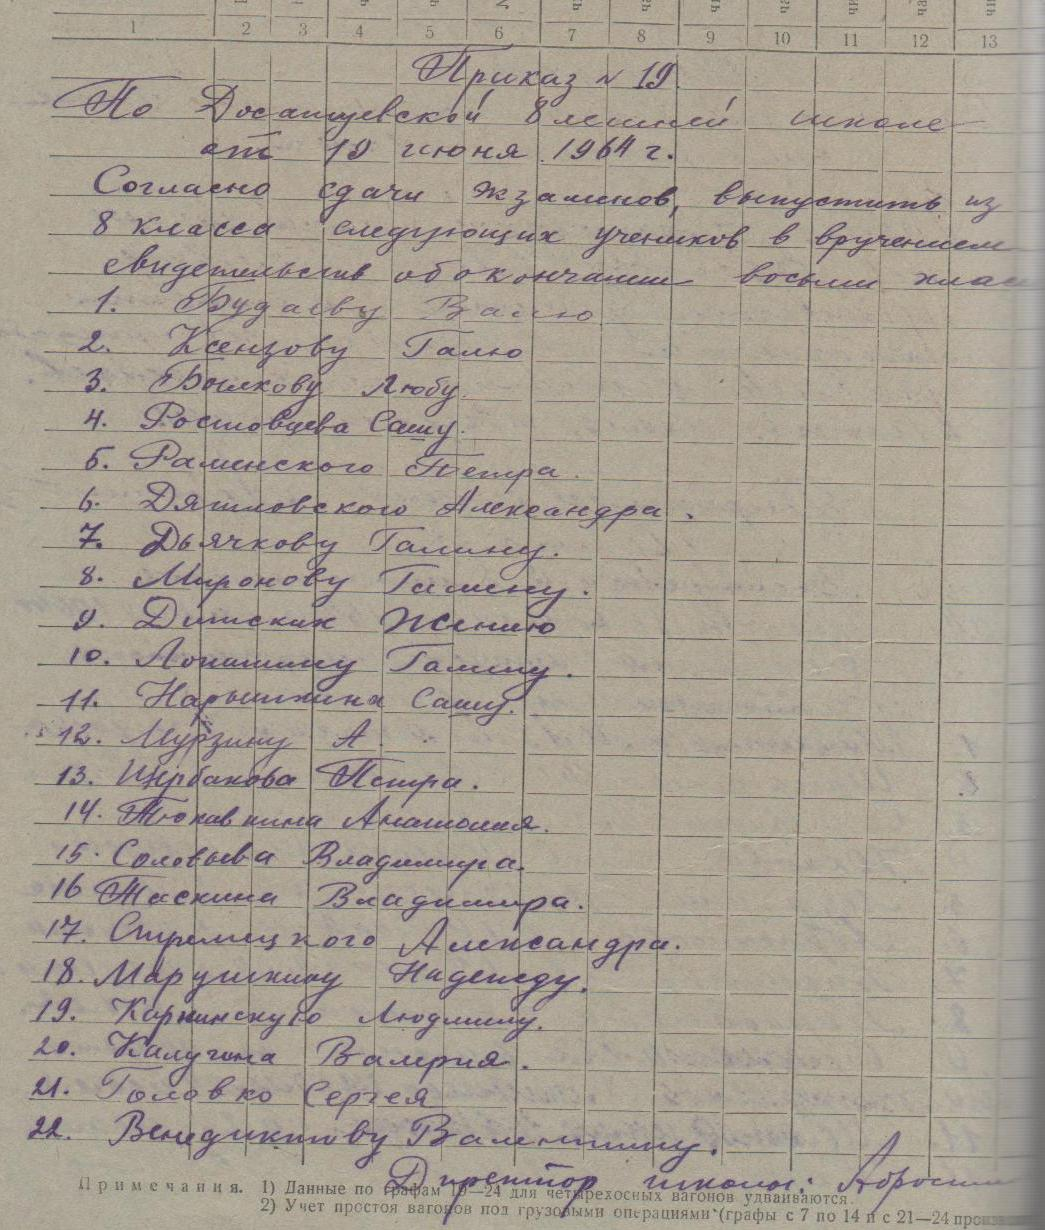 1 2 3 4 5 6 7 8 9 10 11 12 13
Приказ № 19.
По Досатуевской 8 летней школе
от 19 июня 1964 г.
Согласно сдачи экзаменов, выпустить из
8 класса следующих учеников в вручением
свидетельств об окончании восьми клас
1. Будаеву Валю
2. Ксензову Галю
3. Былкову Любу.
4. Ростовцева Сашу.
5. Раменского Петра.
6. Дятловского Александра.
7. Дьячкову Галину.
8. Миронову Галину.
9. Женю
10. Лопатину Галину.
11. Нарышкина Сашу.
12. Мурзину А.
13. Щербакова Петра.
14. Тюкавкина Анатолия.
15. Соловьева Владимира.
16 Таскина Владимира.
17. Стрелецкого Александра.
18. Марушкину Надежду.
19. Карпинскую Людмилу.
20. Калугина Валерия.
21. Головко Сергея
22. Венедиктову Валентину.
Директор школы:
Примечания. 1) Данные по графам 19—24 для четырехосных вагонов удваиваются.
2) Учет простоя вагонов под грузовыми операциями (графы с 7 по 14 и с 21—24 произв